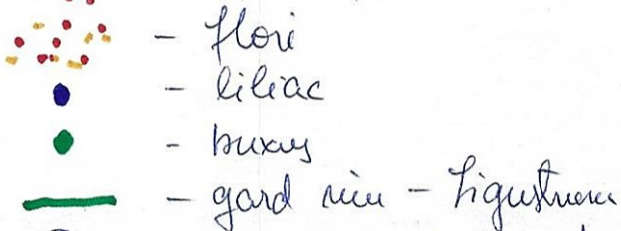 - flori
- liliac
- buxus
- gard viu - Ligustrum